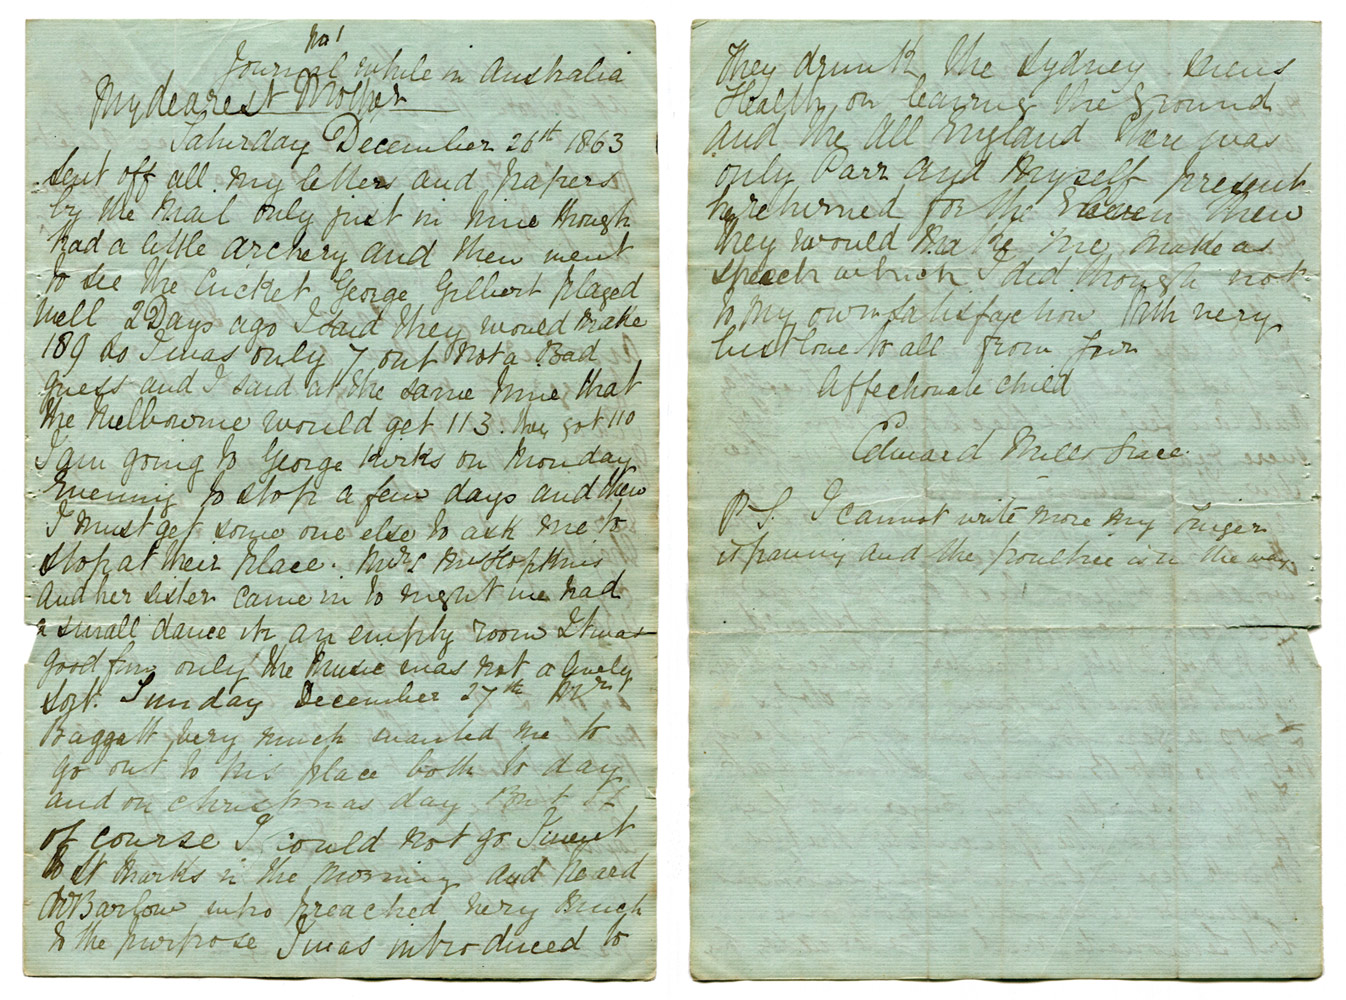 No 1
Journal while in Australia
My dearest Mother
Saturday December 26th 1863
sent off all my letters and papers
by the Mail only just in time though
had a little archery and then went
to see the Cricket George Gilbert played
well 2 Days ago I said they would make
189 so I was only 7 out not a Bad
guess and I said at the same time that
the Melbourne would get 113. they got 110
I am going to George Kirks on Monday
Evening to stop a few days and then
I must get some one else to ask me to
stop at their place. Mrs McHopkins
and her sister came in to night we had
a small dance in an empty room It was
good fun only the Music was not a lively
sort. Sunday December 27th Mr
Baggott very much wanted me to
go out to his place both to day
and on christmas day But
of course I could not go I went
to St Marks in the Morning and heard
Barlow who preached very much
to the purpose I was introduced to
They drunk the Sydney
Health on leaving the ground
and the All England there was
only Parr and Myself present
he returned for the Eleven then
they would make me make a
speech which I did though not
to my own satisfaction With very
best love to all from your
affectionate child
Edward Mills Grace
P S. I cannot write more my finger
is paining and the poultice is in the way